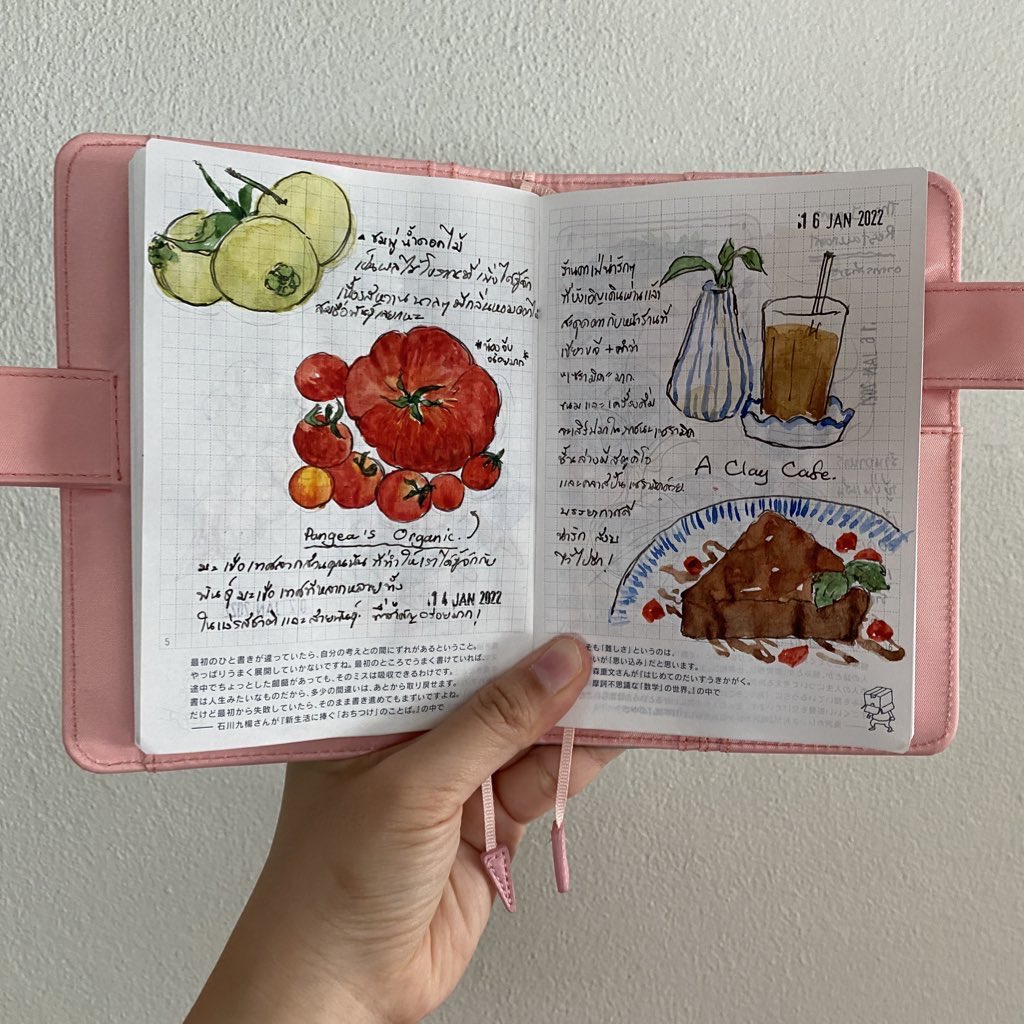 ชมพู่น้ำดอกไม้
เป็นผลไม้โบราณที่เพิ่งได้รู้จัก
เนื้อรสหวาน มีกลิ่นหอมดอกไม้
สมชื่อพันธุ์เลยหละ
Pangea's Organic.
มะเขือเทศจากสวนคุณนัน ที่ทำให้เราได้รู้จักกับ
พันธุ์มะเขือเทศที่หลากหลายทั้ง
ในแง่รสชาติ และสายพันธุ์. ที่สำคัญอร่อยมาก!
14 JAN 2022
5
最初のひと書きが違っていたら、自分の考えとの間にずれがあるということ。
やっぱりうまく展開していかないですね。最初のところでうまく書けていれば、
途中でちょっとした齟齬があっても、そのミスは吸収できるわけです。
書は人生みたいなものだから、多少の間違いは、あとから取り戻せます。
だけど最初から失敗していたら、そのまま書き進めてもまずいですよね。
—— 石川九楊さんが『新生活に捧ぐ「おちつけ」のことば。』の中で
16 JAN 2022
ร้านคาเฟ่น่ารักๆ
ที่บังเอิญเดินผ่านแล้ว
สะดุดตากับหน้าร้านที่
เขียวขจี + คำว่า
"เซรามิค" มาก
ขนมและเครื่องดื่ม
จะเสิร์ฟมาในภาชนะเซรามิค
ชั้นล่างมีสตูดิโอ
และคลาสปั้นเซรามิคด้วย.
บรรยากาศดี
น่ารัก สงบ
ไว้ไปอีก!
A Clay Cafe.
そも「難しさ」というのは、
いが「思い込み」だと思います。
森里文さんが『はじめてのだいすうきかがく。
摩訶不思議な「数学」の世界。』の中で